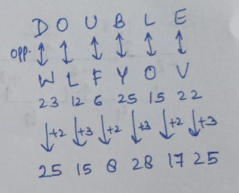 D O U B L E
opp.
W L F Y O V
23 12 6 25 15 22
+2 +3 +2 +3 +2 +3
25 15 8 28 17 25